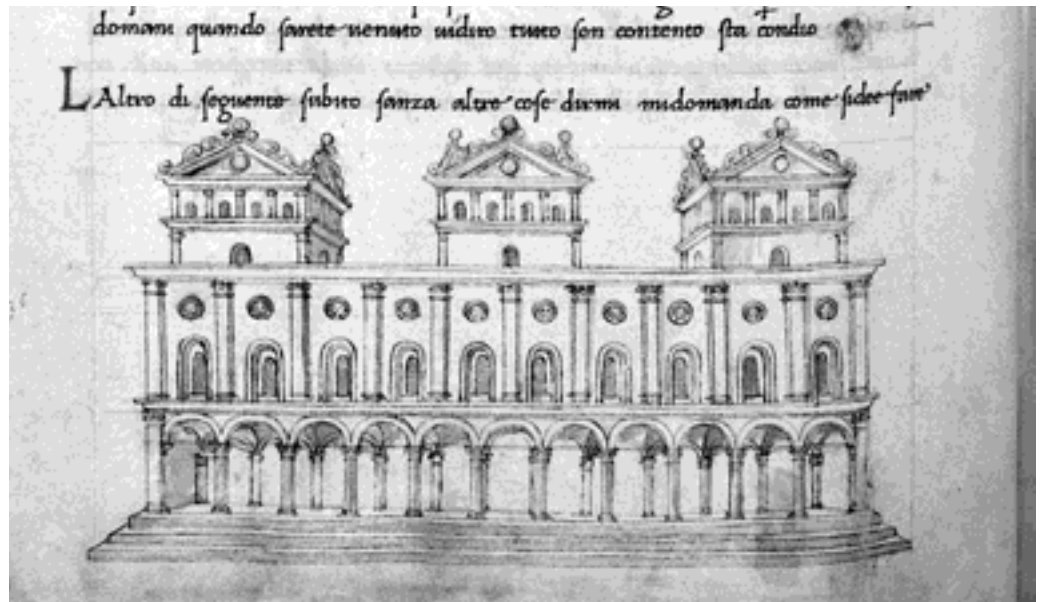 domani quando sarete venuto vidiro tutto son contento sta condio
LAltro di seguente subito sanza altre cose dirmi midomanda come sidee fare